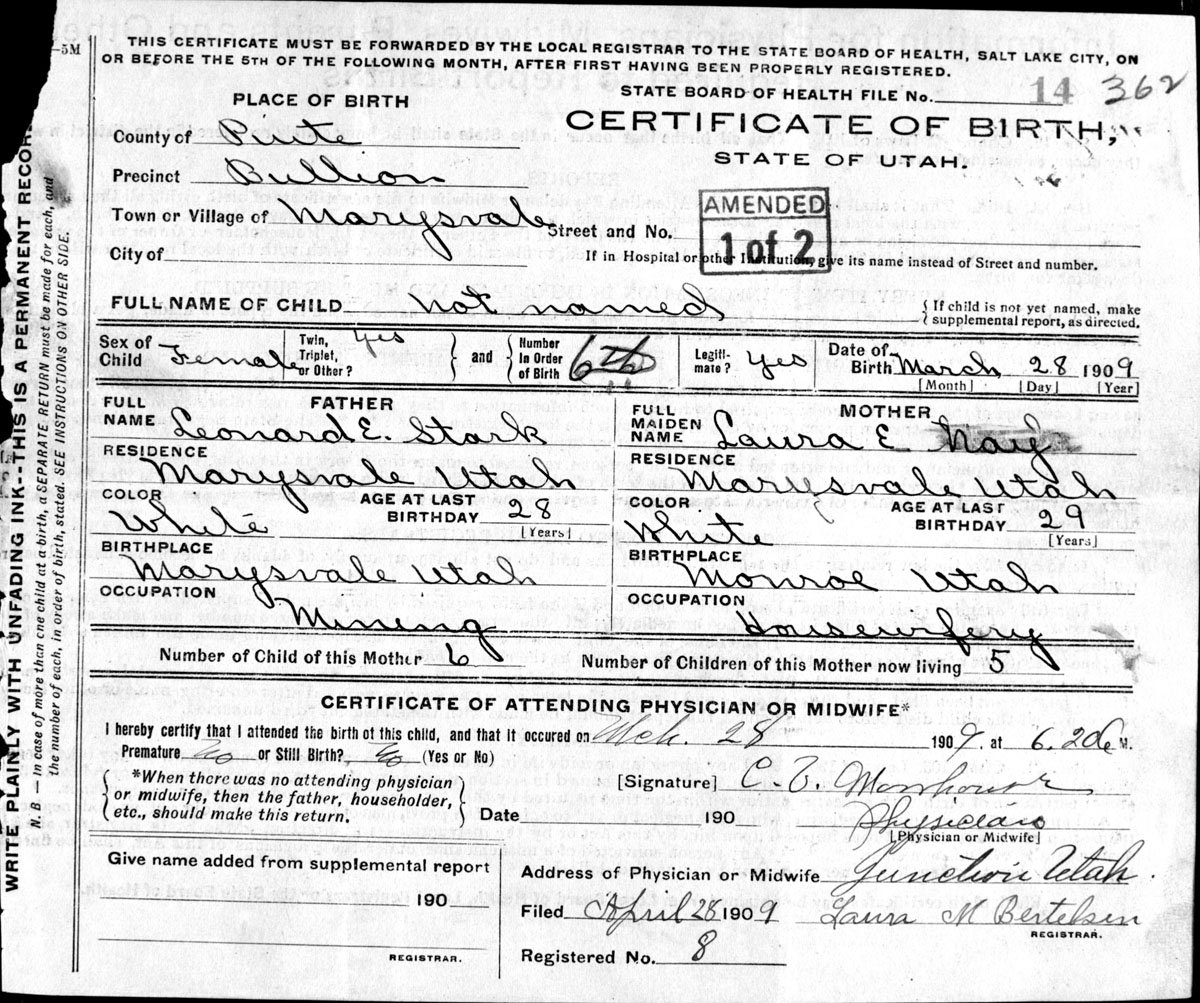 -5M
THIS CERTIFICATE MUST BE FORWARDED BY THE LOCAL REGISTRAR TO THE STATE BOARD OF HEALTH, SALT LAKE CITY, ON
OR BEFORE THE 5TH OF THE FOLLOWING MONTH, AFTER FIRST HAVING BEEN PROPERLY REGISTERED.
STATE BOARD OF HEALTH FILE No. 14 362
PLACE OF BIRTH
CERTIFICATE OF BIRTH,
STATE OF UTAH.
County of Piute
Precinct Bullion
AMENDED
1 of 2
Town or Village of Marysvale Street and No.
City of If in Hospital or other Institution, give its name instead of Street and number.
FULL NAME OF CHILD not named { If child is not yet named, make
supplemental report, as directed.
Sex of Child Female Twin, Triplet, or Other? Yes } and { Number In Order of Birth 6th Legiti-mate? Yes Date of Birth March 28 1909
[Month] [Day] [Year
FULL NAME FATHER Leonard E. Stark
FULL MAIDEN NAME MOTHER Laura E Nay
RESIDENCE Marysvale Utah
RESIDENCE Marysvale Utah
COLOR White AGE AT LAST BIRTHDAY 28 [Years]
COLOR White AGE AT LAST BIRTHDAY 29 [Years]
BIRTHPLACE Marysvale Utah
BIRTHPLACE Monroe Utah
OCCUPATION Mining
OCCUPATION Housewifery
Number of Child of this Mother 6 Number of Children of this Mother now living 5
CERTIFICATE OF ATTENDING PHYSICIAN OR MIDWIFE*
I hereby certify that I attended the birth of this child, and that it occured on Mch. 28 1909, at 6.20 M.
Premature No or Still Birth? No (Yes or No)
{ *When there was no attending physician
or midwife, then the father, householder,
etc., should make this return. }
[Signature] C. V.
Date 190
Physician
[Physician or Midwife]
Give name added from supplemental report
190
REGISTRAR.
Address of Physician or Midwife Junction Utah.
Filed April 26 1909 Laura M Bertelsen
REGISTRAR.
Registered No. 8
WRITE PLAINLY WITH UNFADING INK--THIS IS A PERMANENT RECORD
N. B.—In case of more than one child at a birth, a SEPARATE RETURN must be made for each, and
the number of each, in order of birth, stated. SEE INSTRUCTIONS ON OTHER SIDE.